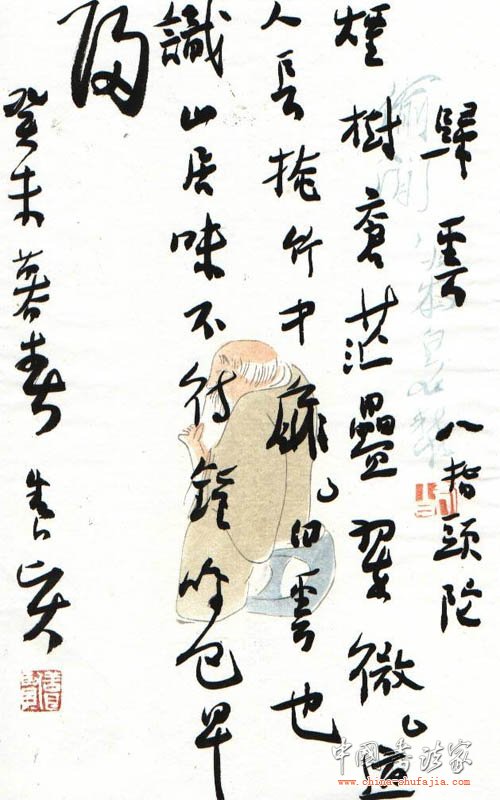 歸雲 八指頭陀
煙樹蒼茫疊翠微道
人長掩竹中扉白雲也
識山居味不待鐘鳴已早
歸
癸未暮春
偷閑
中国书法家
www.china-shufajia.com